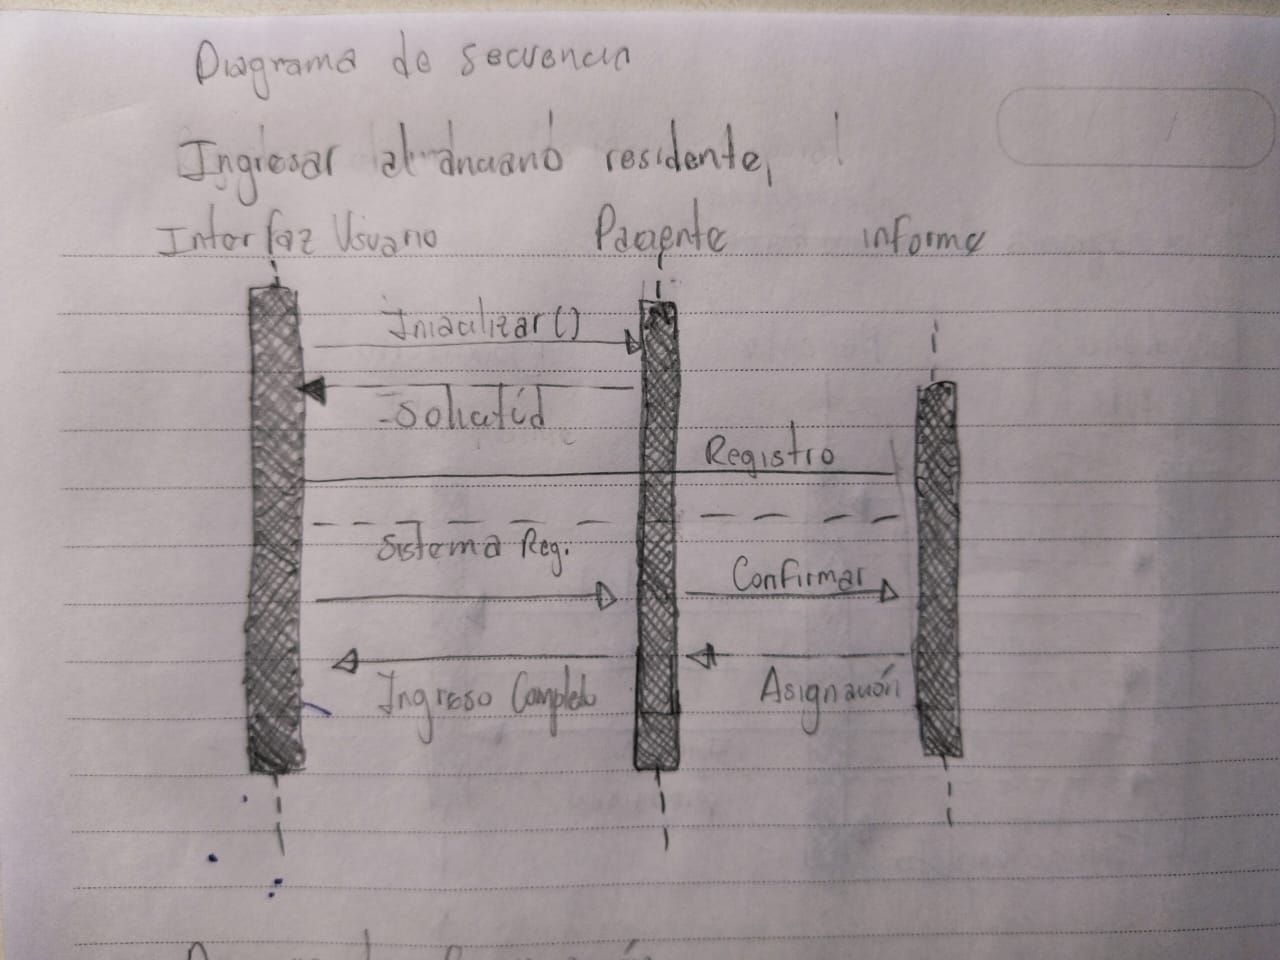 Diagrama de secuencia
Ingresar al anciano residente,
Interfaz Usuario Paciente informe
Inicializar()
Solicitud
Registro
Sistema Reg.
Confirmar
Ingreso Completo Asignación